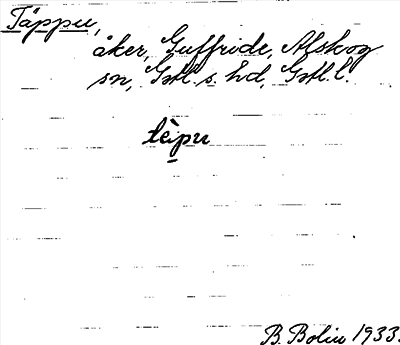 Täppu,
åker, Guffride, Alskog
sn, Gotl. s. hd, Gotl. l.
tèpu
B. Bolin 1933.